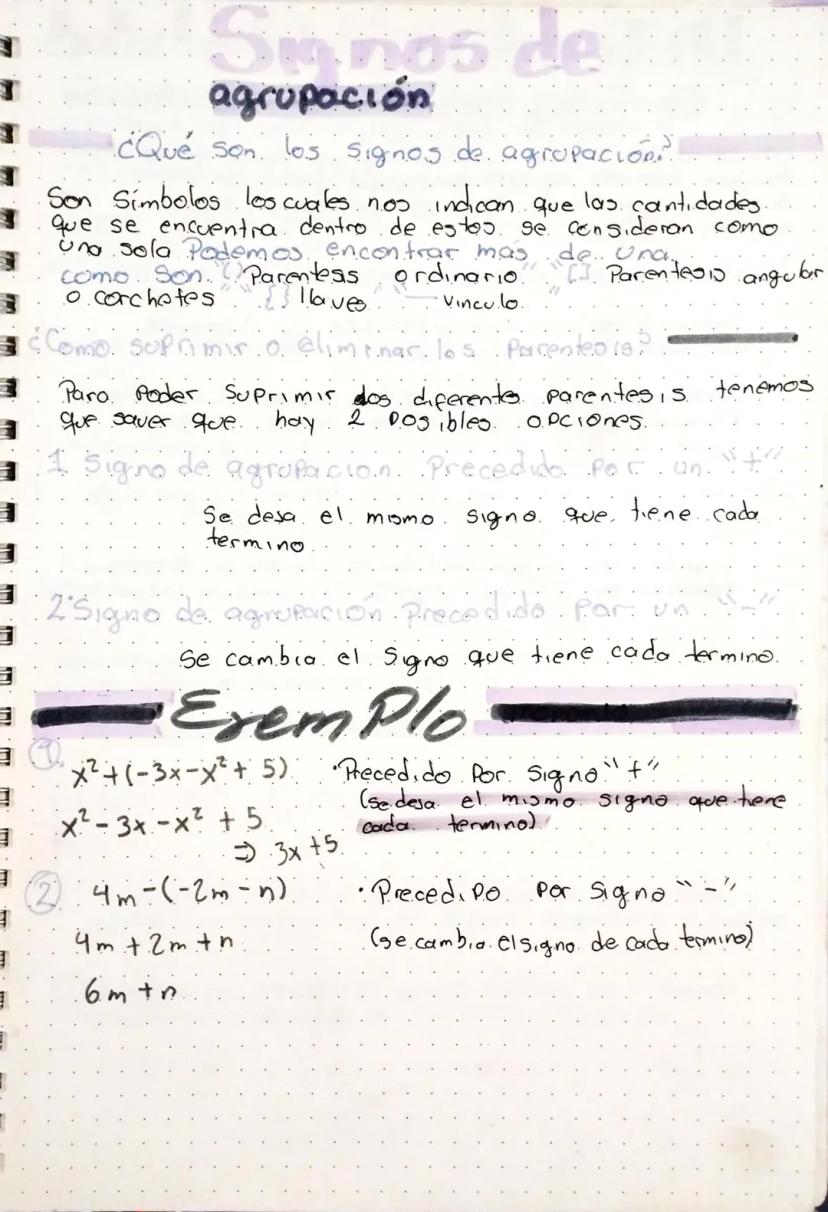 Signos de
agrupación
¿Qué son los signos de agrupación?
Son Símbolos los cuales nos indican que las cantidades
que se encuentra dentro de estos se consideran como
una sola Podemos encontrar mas de una
como son "() Parentess ordinario" "[] Parentesis angular
o corchetes {} llaves "— vinculo"
¿Como suprimir o eliminar los Parentesis?
Para Poder suprimir dos diferentes parentesis tenemos
que saver que hay 2 posibles opciones.
1 Signo de agrupacion Precedido Por un "+"
Se desa el mismo signo que tiene cada
termino
2° Signo de agrupación Precedido Por un "-"
Se cambia el Signo que tiene cada termino.
Exemplo
1 x² + (-3x - x² + 5) • Precedido Por Signo "+"
(se desa el mismo signo que tiene
x² - 3x - x² + 5 cada termino)
⇒ 3x + 5
2 4m - (-2m - n) • Precedido Por Signo "-"
4m + 2m + n (se cambia el signo de cada termino)
6m + n